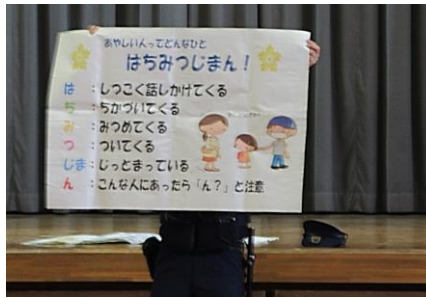 あやしい人ってどんなひと
はちみつじまん！
は：しつこく話しかけてくる
ち：ちかづいてくる
み：みつめてくる
つ：ついてくる
じま：じっとまっている
ん：こんな人にあったら「ん？」と注意